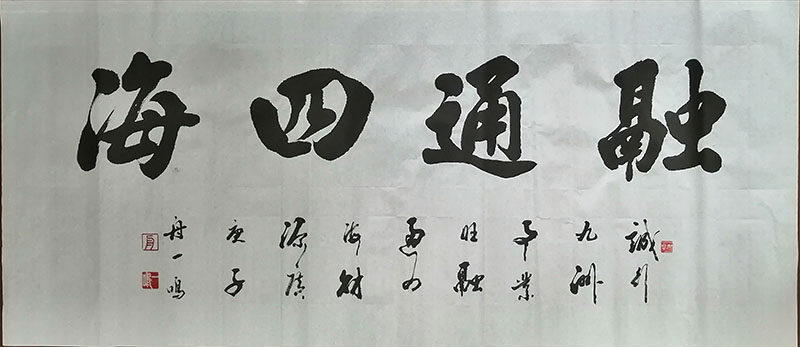 融通四海
誠
九洲
事業
旺融
通四
海財
源廣
庚子
舟一鳴